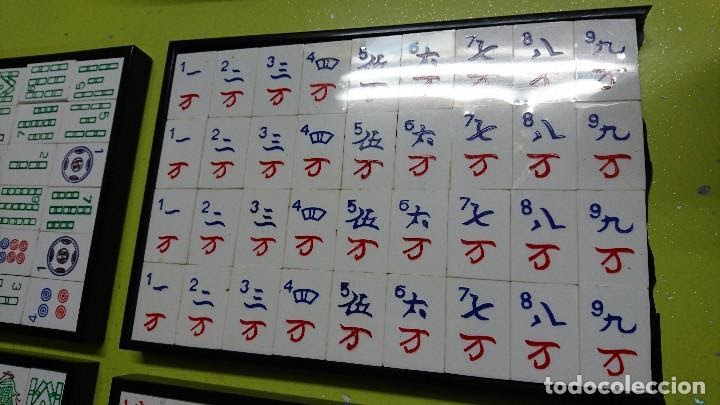 1 一 2 二 3 三 4 四 5 伍 6 六 7 七 8 八 9 九
万 万 万 万 万 万 万 万 万
1 一 2 二 3 三 4 四 5 伍 6 六 7 七 8 八 9 九
万 万 万 万 万 万 万 万 万
1 一 2 二 3 三 4 四 5 伍 6 六 7 七 8 八 9 九
万 万 万 万 万 万 万 万 万
1 一 2 二 3 三 4 四 5 伍 6 六 7 七 8 八 9 九
万 万 万 万 万 万 万 万 万
7 5
2 1
6 7
1
3 4
todocoleccion